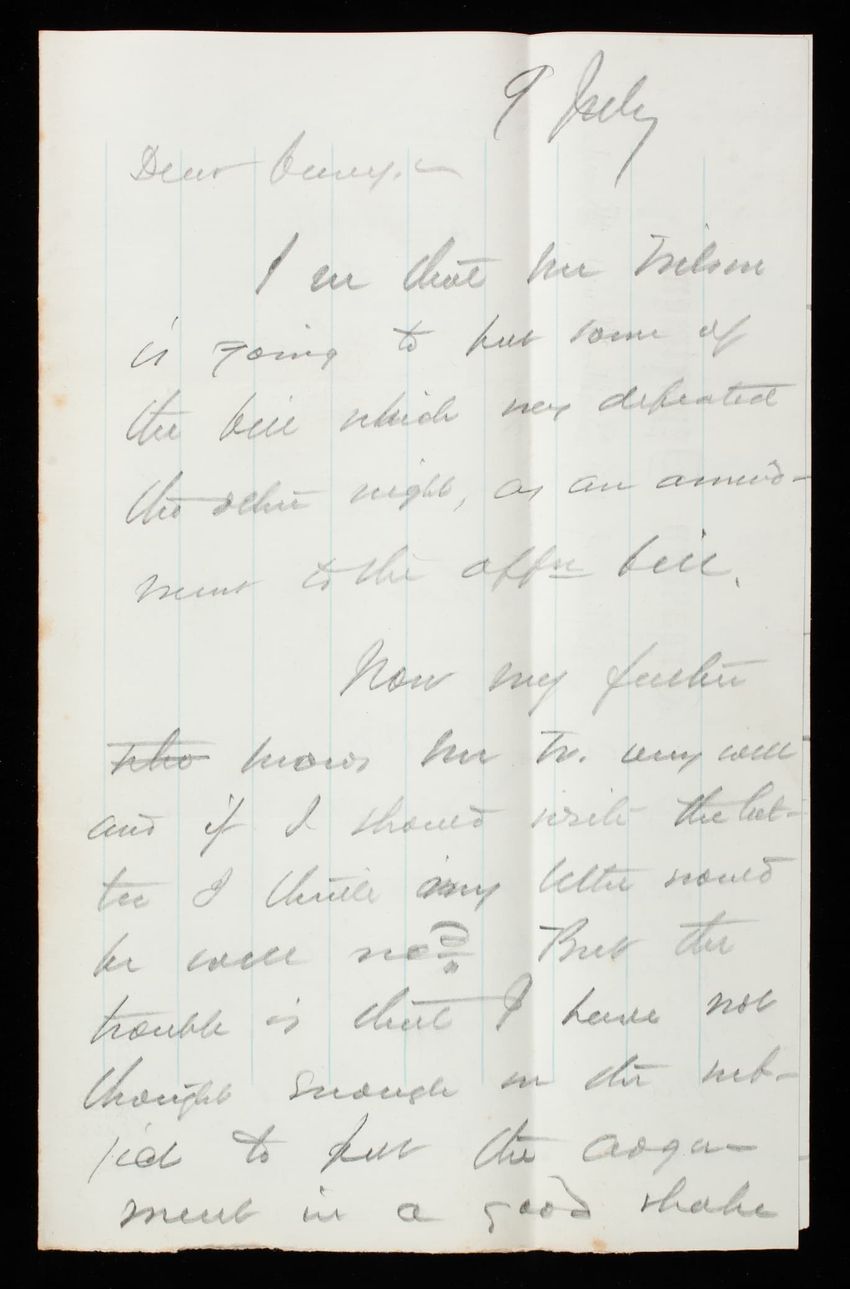 9 July
Dear Casey.—
I see that Mr Wilson
is going to put some of
the bill which was defeated
the other night, as an amend-
ment to the appn bill.
Now my father
who knows Mr W. very well
and if I should write the let-
ter I think my letter would
be well recd. But the
trouble is that I have not
thought enough on the sub-
ject to put the argu-
ment in a good shape